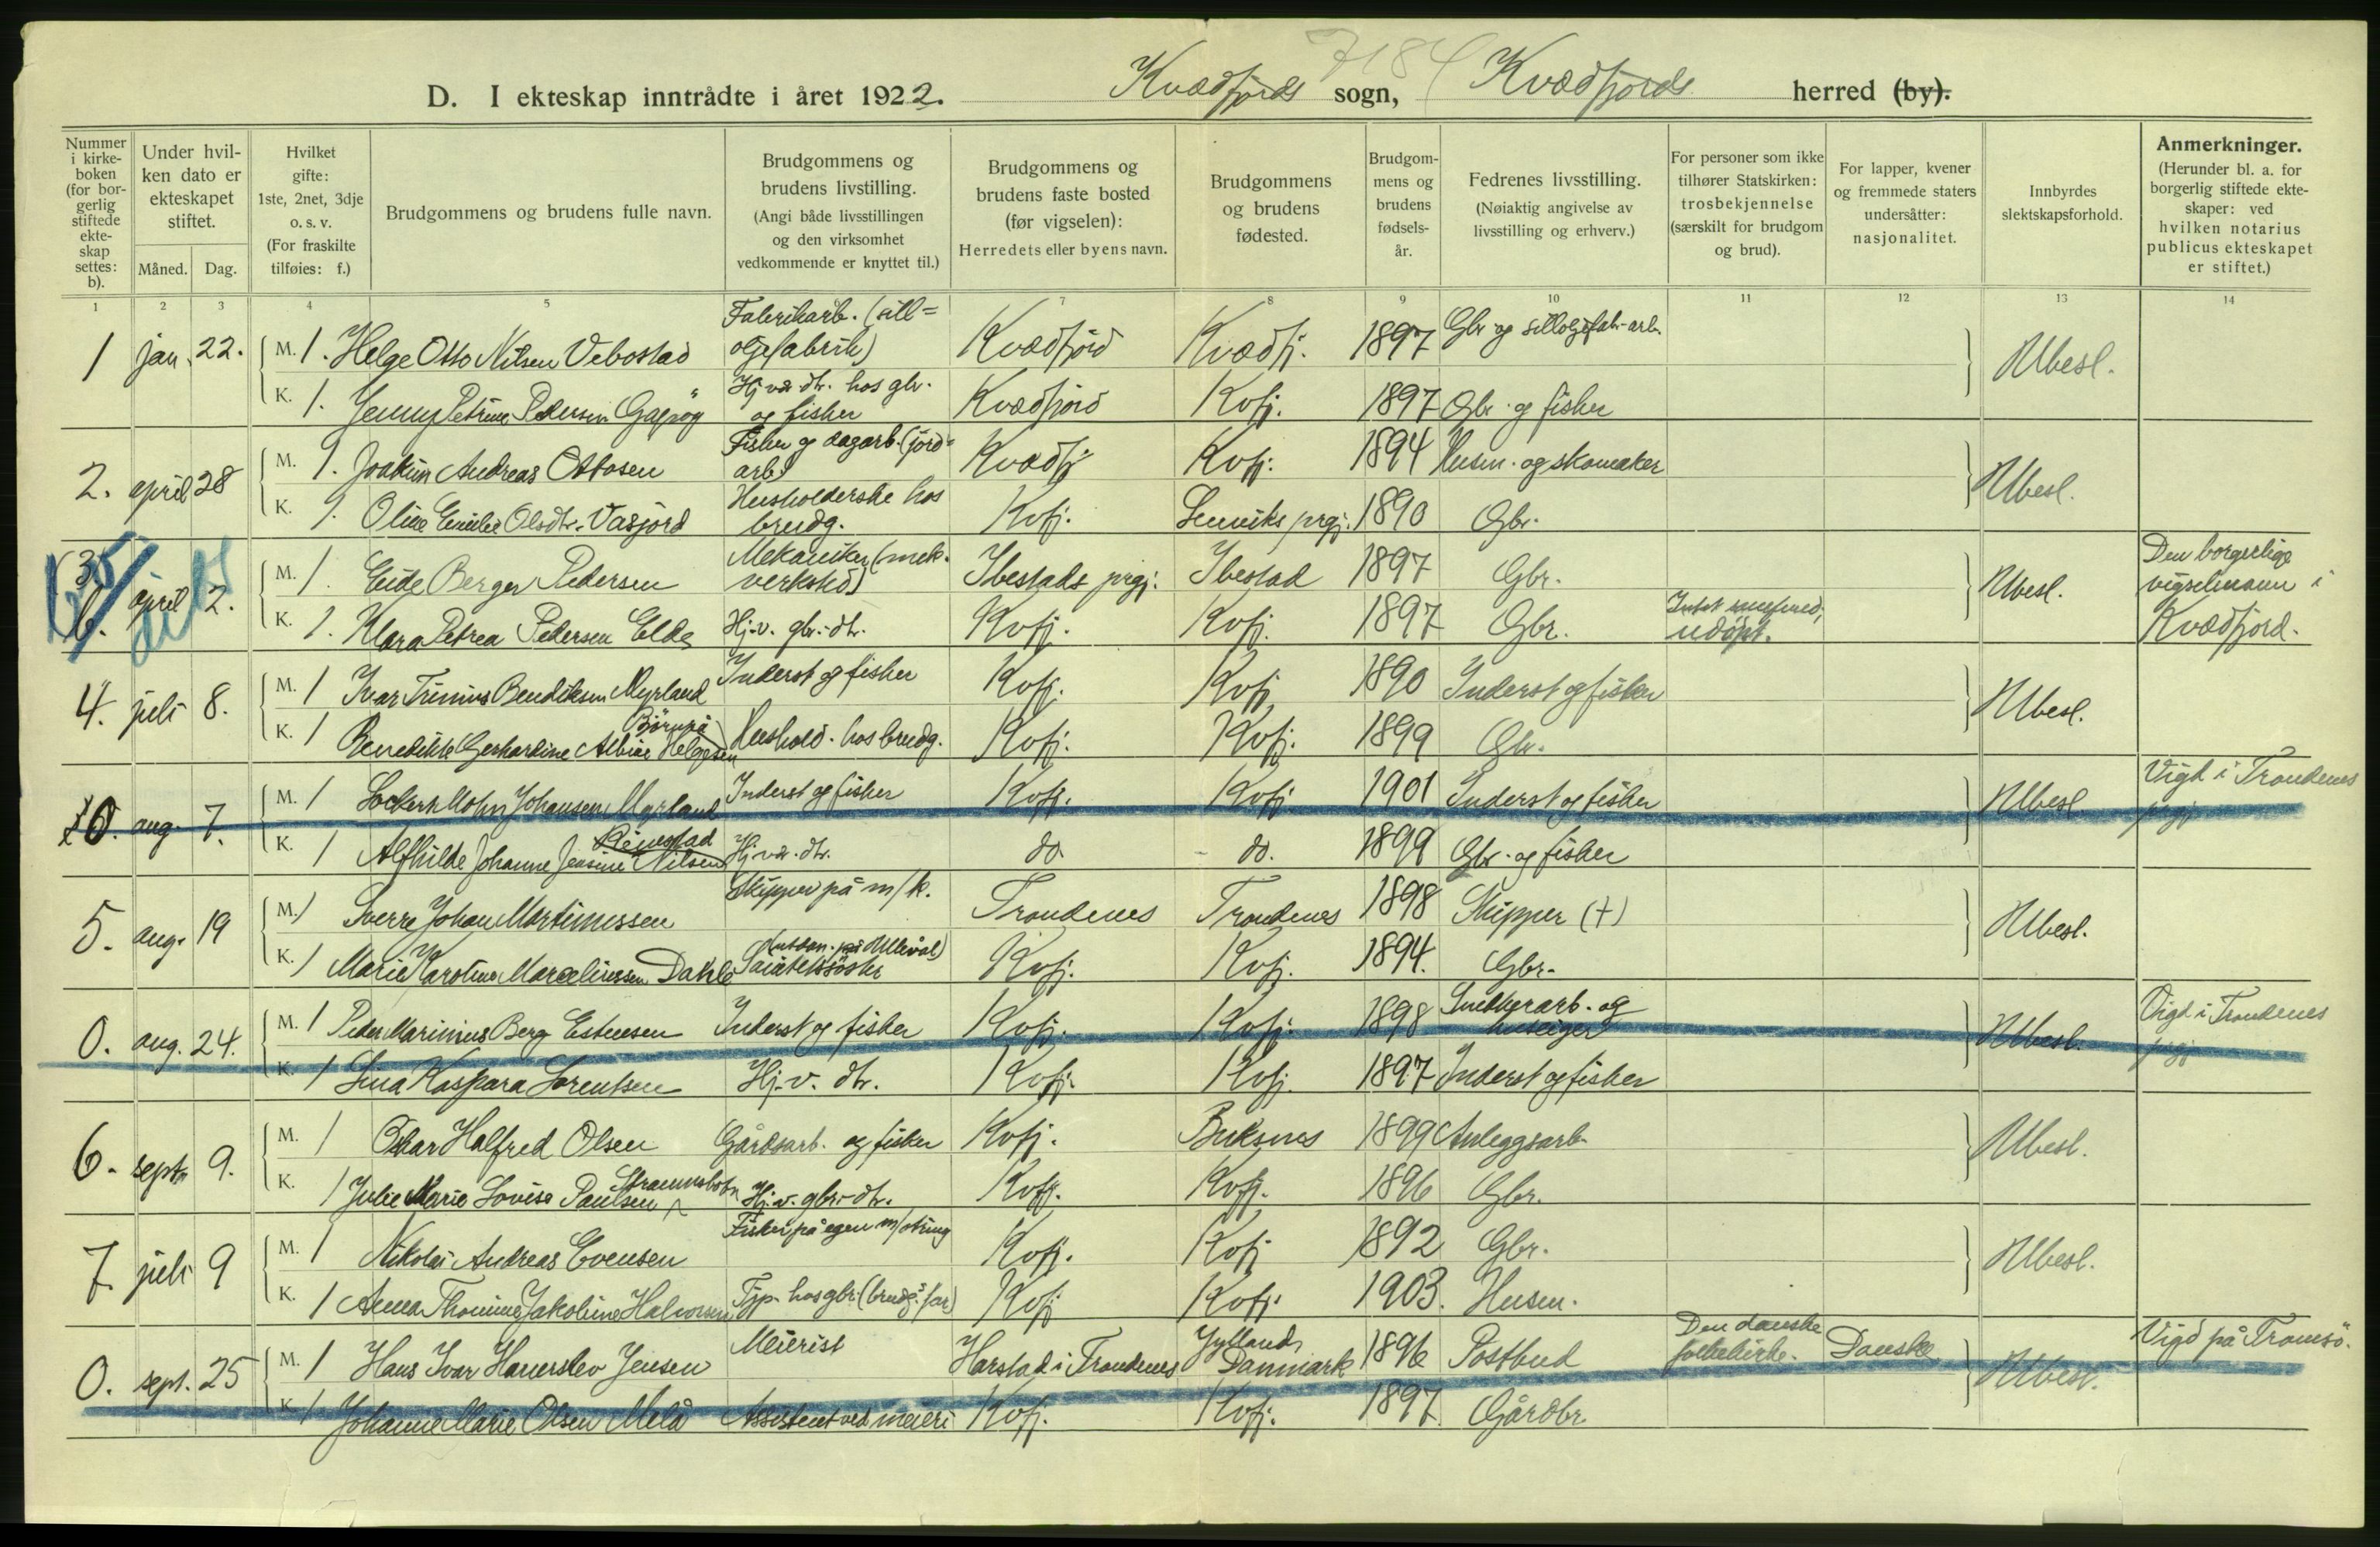 7184
D. I ekteskap inntrådte i året 1922. Kvædfjords sogn, Kvædfjords herred (by).
Nummer i kirke-boken (for bor-gerlig stiftede ekte-skap settes: b).
Under hvil-ken dato er ekteskapet stiftet.
Måned. Dag.
Hvilket gifte: 1ste, 2net, 3dje o. s. v. (For fraskilte tilføies: f.)
Brudgommens og brudens fulle navn.
Brudgommens og brudens livstilling. (Angi både livsstillingen og den virksomhet vedkommende er knyttet til.)
Brudgommens og brudens faste bosted (før vigselen): Herredets eller byens navn.
Brudgommens og brudens fødested.
Brudgom-mens og brudens fødsels-år.
Fedrenes livsstilling. (Nøiaktig angivelse av livsstilling og erhverv.)
For personer som ikke tilhører Statskirken: trosbekjennelse (særskilt for brudgom og brud).
For lapper, kvener og fremmede staters undersåtter: nasjonalitet.
Innbyrdes slektskapsforhold.
Anmerkninger. (Herunder bl. a. for borgerlig stiftede ekte-skaper: ved hvilken notarius publicus ekteskapet er stiftet.)
1 2 3 4 5 7 8 9 10 11 12 13 14
1 jan. 22. M. 1. Helge Otto Nilsen Vebostad Fabrikarb. (sill=oljefabrik) Kvædfjord Kvædfj. 1897 Gbr. og silloljefabr.arb. Ubesl.
K. 1. Jenny Petrine Pedersen Gapøy Hj. va. dtr. hos gbr. og fisker Kvædfjord Kvfj. 1897 Gbr. og fisker
2. april 28 M. 1. Joakim Andreas Ottosen Fisker og dagarb. (jord=arb) Kvædfj Kvfj. 1894 Husm. og skomaker Ubesl.
K. 1. Oline Emilie Olsdtr. Vasjord Husholderske hos brudg. Kvfj. Lenviks prgj. 1890 Gbr.
3 b. april 2. M. 1. Eide Berger Pedersen Mekaniker (mek. verksted) Ibestads prgj. Ibestad 1897 Gbr. Ubesl. Den borgerlige vigselmann i Kvædfjord.
K. 1. Klara Petrea Pedersen Elde Hj. v. gbr.-dtr. Kvfj. Kvfj. 1897 Gbr. udøpt.
4. juli 8. M. 1 Ivar Trinius Bendiksen Myrland Inderst og fisker Kvfj. Kvfj. 1890 Inderst og fisker Ubesl.
K. 1 Benedikte Gerhardine Albine Helgesen Hushold. hos brudg. Kvfj. Kvfj. 1899 Gbr.
0. aug. 7. M. 1 Mohn Johansen Myrland Inderst og fisker Kvfj. Kvfj 1901 Inderst og fisker Ubesl. Vigd i Trondenes prgj
K. 1 Alfhilde Johanne Jensine Nilsen Hj. va. dtr. do do. 1899 Gbr. og fisker
5. aug. 19 M. 1 Sverre Johan Martinussen Skipper på m/k. Trondenes Trondenes 1898 Skipper (+) Ubesl.
K. 1 Marie Karoline Marcelinssen Dahle (utdan. på Ullevål) Kvfj. Kvfj. 1894. Gbr.
0. aug. 24. M. 1 Peder Marinius Berg Estensen Inderst og fisker Kvfj. Kvfj. 1898 Snekkerarb. og huseiger Ubesl. Vigd i Trondenes prgj
K. 1 Lina Kaspara Lorentsen Hj. v. dtr. Kvfj. Kvfj. 1897 Inderst og fisker
6. septr 9. M. 1 Oskar Halfred Olsen Gårdsarb. og fisker Kvfj. Buksnes 1899 Anleggsarb. Ubesl.
K. 1 Julie Marie Lovise Paulsen Straumsbotn Hj. v. gbr.-dtr. Kvfj. Kvfj. 1896 Gbr.
7. juli 9 M. 1 Nikolai Andreas Evensen Fisker på egen m/ Kvfj. Kvfj 1892 Gbr. Ubesl.
K. 1 Anna Thomine Jakobine Halvorsen Tjp. hos gbr. (brudg.s far) Kvfj Kvfj. 1903. Husm.
0. sept. 25 M. 1 Hans Ivar Hanerslev Jensen Meierist Harstad i Trondenes Jyllands Danmark 1896 Postbud Den danske folkekirke. Danske Ubesl. Vigd på Tromsö.
K. 1 Johanne Marie Olsen Melå Assistent ved meieri Kvfj. Kvfj. 1897 Gårdbr.